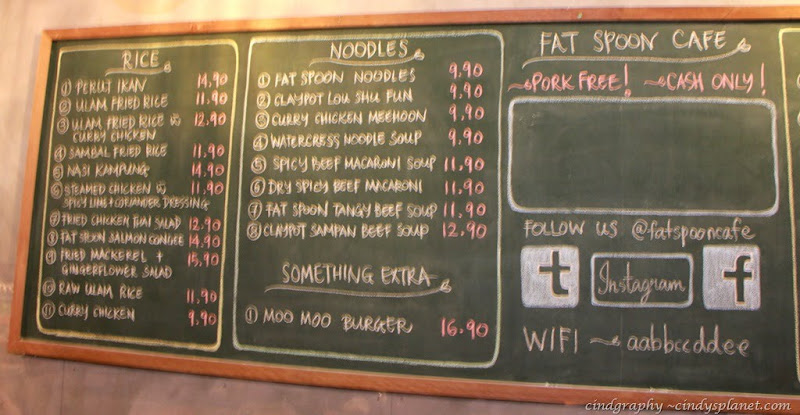 RICE
① PERUT IKAN 14.90
② ULAM FRIED RICE 11.90
③ ULAM FRIED RICE W 12.90
CURRY CHICKEN
④ SAMBAL FRIED RICE 11.90
⑤ NASI KAMPUNG 14.90
⑥ STEAMED CHICKEN W 11.90
SPICY LIME + CORIANDER DRESSING
⑦ FRIED CHICKEN THAI SALAD 12.90
⑧ FAT SPOON SALMON CONGEE 14.90
⑨ FRIED MACKEREL + 15.90
GINGERFLOWER SALAD
⑩ RAW ULAM RICE 11.90
⑪ CURRY CHICKEN 9.90
NOODLES
① FAT SPOON NOODLES 9.90
② CLAYPOT LOU SHU FUN 9.90
③ CURRY CHICKEN MEEHOON 9.90
④ WATERCRESS NOODLE SOUP 9.90
⑤ SPICY BEEF MACARONI SOUP 11.90
⑥ DRY SPICY BEEF MACARONI 11.90
⑦ FAT SPOON TANGY BEEF SOUP 11.90
⑧ CLAYPOT SAMPAN BEEF SOUP 12.90
SOMETHING EXTRA
① MOO MOO BURGER 16.90
FAT SPOON CAFE
~PORK FREE! ~CASH ONLY!
FOLLOW US @fatspooncafe
t Instagram f
WIFI ~ aabbccddee
cindgraphy ~cindysplanet.com